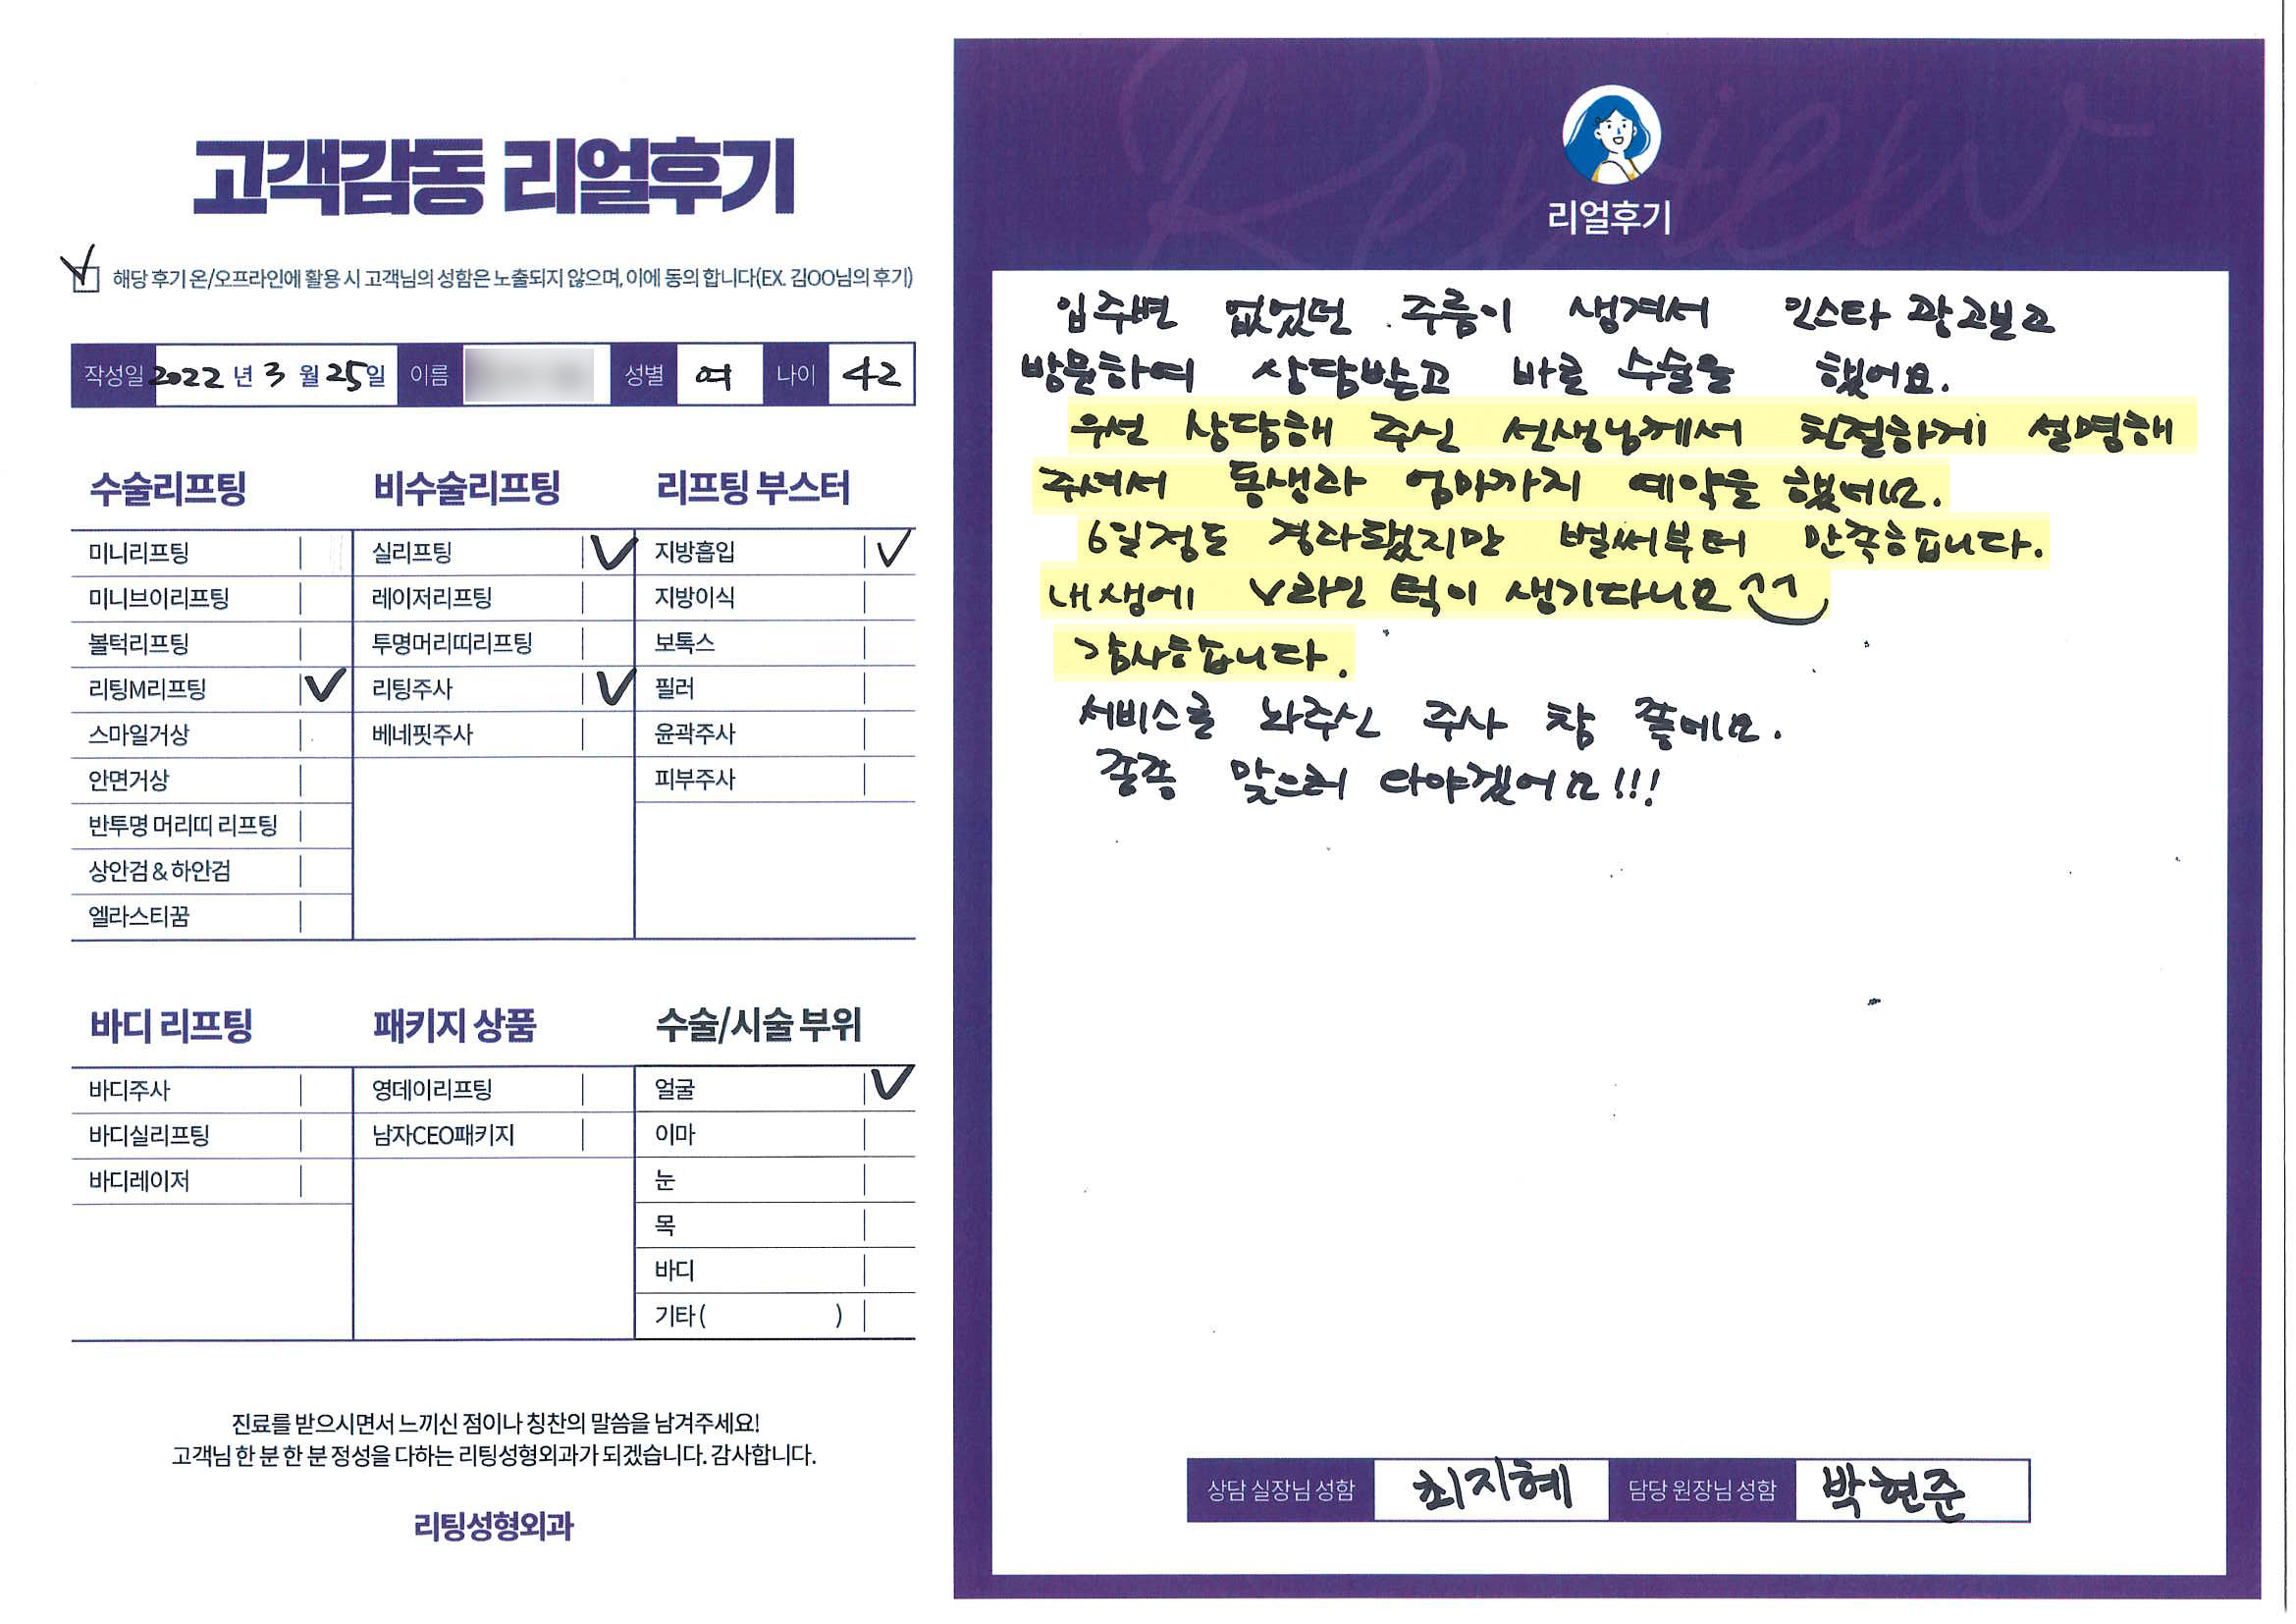 고객감동 리얼후기
해당 후기 온/오프라인에 활용 시 고객님의 성함은 노출되지 않으며, 이에 동의 합니다(EX. 김OO님의 후기)
작성일 2022 년 3 월 25일 이름 성별 여 나이 42
수술리프팅
미니리프팅
미니브이리프팅
볼턱리프팅
리팅M리프팅
스마일거상
안면거상
반투명 머리띠 리프팅
상안검 & 하안검
엘라스티꿈
비수술리프팅
실리프팅
레이저리프팅
투명머리띠리프팅
리팅주사
베네핏주사
리프팅 부스터
지방흡입
지방이식
보톡스
필러
윤곽주사
피부주사
바디 리프팅
바디주사
바디실리프팅
바디레이저
패키지 상품
영데이리프팅
남자CEO패키지
수술/시술 부위
얼굴
이마
눈
목
바디
기타 ( )
진료를 받으시면서 느끼신 점이나 칭찬의 말씀을 남겨주세요!
고객님 한 분 한 분 정성을 다하는 리팅성형외과가 되겠습니다. 감사합니다.
리팅성형외과
Review
리얼후기
입주변 없었던 주름이 생겨서 인스타 광고보고
방문하여 상담받고 바로 수술을 했어요.
우선 상담해 주신 선생님께서 친절하게 설명해
주셔서 동생과 엄마까지 예약을 했네요.
6일정도 경과됐지만 벌써부터 만족합니다.
내생에 V라인 턱이 생기다니요 ^^
감사합니다.
서비스로 놔주신 주사 참 좋네요.
종종 맞으러 와야겠어요!!!
상담 실장님 성함 최지혜 담당 원장님 성함 박현준